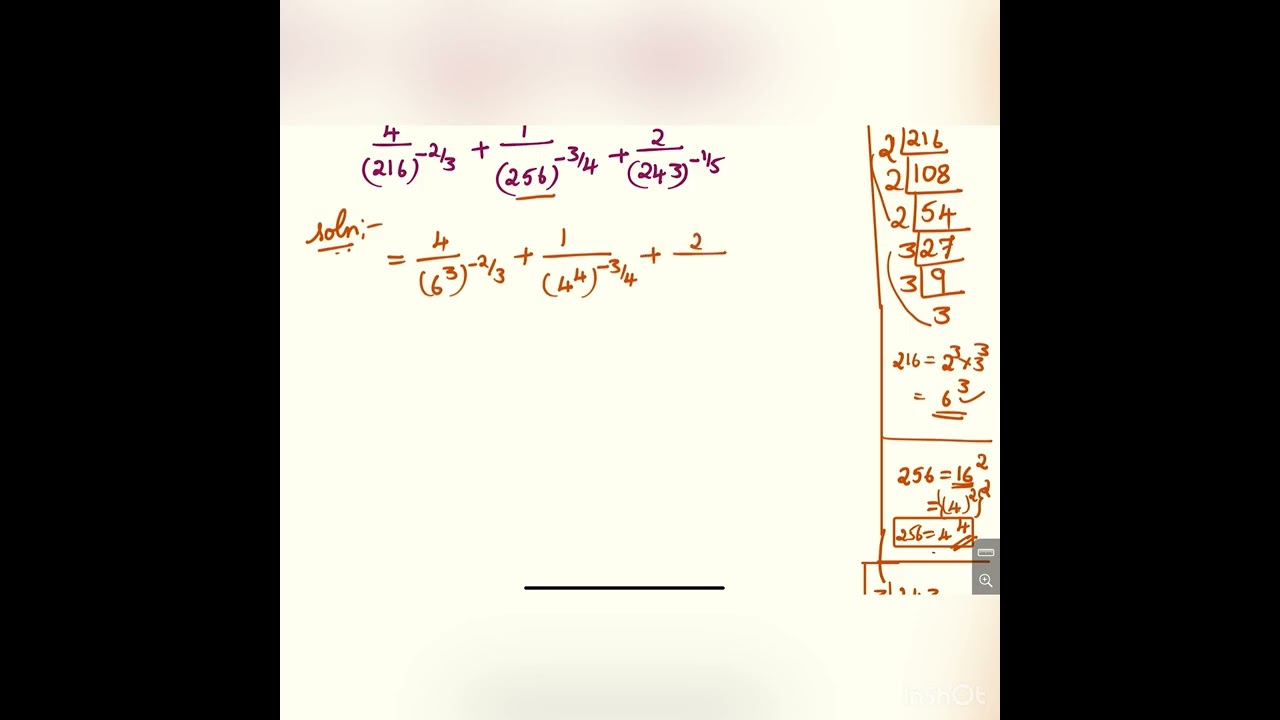 4/(216)^-2/3 + 1/(256)^-3/4 + 2/(243)^-1/5
soln:-
= 4/(6^3)^-2/3 + 1/(4^4)^-3/4 + 2/
2 | 216
2 | 108
2 | 54
3 | 27
3 | 9
3
216 = 2^3 × 3^3
= 6^3
256 = 16^2
= ((4)^2)^2
256 = 4^4
InShOt